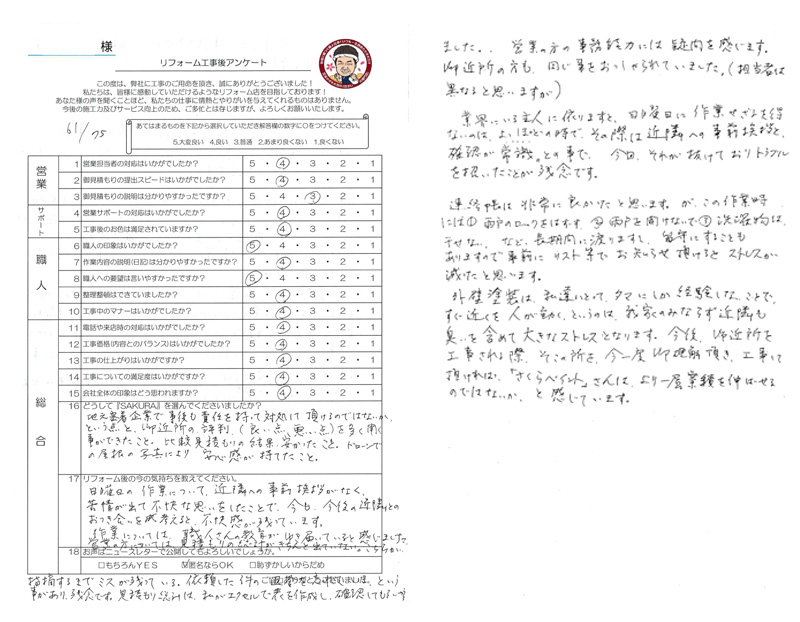 様
リフォーム工事後アンケート
この度は、弊社に工事のご用命を頂き、誠にありがとうございました!
私たちは、皆様に感動していただけるようなリフォーム店を目指しております!
あなた様の声を聞くことほど、私たちの仕事に情熱とやりがいを与えてくれるものはありません。
今後の施工力及びサービス向上のため、ご多忙とは存じますが、よろしくお願いいたします。
61/75
あてはまるものを下記から選択していただき解答欄の数字に○をつけてください。
5.大変良い 4.良い 3.普通 2.あまり良くない 1.良くない
営業
1 営業担当者の対応はいかがでしたか? 5・4・3・2・1
2 御見積もりの提出スピードはいかがでしたか? 5・4・3・2・1
3 御見積もりの説明は分かりやすかったですか? 5・4・3・2・1
サポート
4 営業サポートの対応はいかがでしたか? 5・4・3・2・1
5 工事後のお色は満足されていますか? 5・4・3・2・1
職人
6 職人の印象はいかがでしたか? 5・4・3・2・1
7 作業内容の説明(日記)は分かりやすかったですか? 5・4・3・2・1
8 職人への要望は言いやすかったですか? 5・4・3・2・1
9 整理整頓はできていましたか? 5・4・3・2・1
10 工事中のマナーはいかがでしたか? 5・4・3・2・1
総合
11 電話や来店時の対応はいかがでしたか? 5・4・3・2・1
12 工事価格(内容とのバランス)はいかがでしたか? 5・4・3・2・1
13 工事の仕上がりはいかがですか? 5・4・3・2・1
14 工事についての満足度はいかがですか? 5・4・3・2・1
15 会社全体の印象はどう思われますか? 5・4・3・2・1
16 どうして『SAKURA』を選んでくださいましたか?
地元業者企業で事後も責任を持って対処して頂けるのではないか、
という点と、御近所の評判、(良い点、悪い点)を多く聞く
事ができたこと。比較見積もりの結果、安かったこと。ドローンで
の屋根の写真により 安心感が持てたこと。
17 リフォーム後の今の気持ちを教えてください。
日曜日の作業について、近隣への事前挨拶がなく、
苦情が出て不快な思いをしたことで、今も、今後の近隣との
おつき合いを考えると、不快感が残っています。
作業については、職人さんの教育がゆき届いていると感じました。
営業の方については、見積もりの総計がきちんと出ていない。こちらが、
18 お声はニュースレターで公開してもよろしいでしょうか。
□もちろんYES ☑匿名ならOK □恥ずかしいからだめ
指摘するまでミスが残っている。依頼した件の
という
事があり、残念です。見積もり総計は、私がエクセルで表を作成し、確認してもらい
ました.. 営業の方の事務能力には疑問を感じます。
御近所の方も、同じ事をおっしゃられていました。(担当者は
異なると思いますが)
業界にいる主人に依りますと、日曜日に作業せざるを得
ないのは、よっぽどの時で、その際は近隣への事前挨拶と、
確認が常識。との事で、今回、それが抜けておりトラブル
を招いたことが残念です。
連絡帳は非常に良かったと思います。が、この作業時
には① 雨戸のロックをはずす、② 雨戸を開けないで③ 洗濯物は、
干せない、など、長期間に渡りますし、留守にすることも
ありますので事前にリスト等でお知らせ頂けるとストレスが
減ったと思います。
外壁塗装は、私達にとって、タマにしか経験しないことで、
すぐ近くを人が動く、というのは、我家のみならず近隣も
臭いを含めて大きなストレスとなります。今後、御近所を
工事される際、そこの所を、今一度御理解頂き、工事して
頂ければ、「さくらペイント」さんは、より一層業績を伸ばせる
のではないか、と感じています。